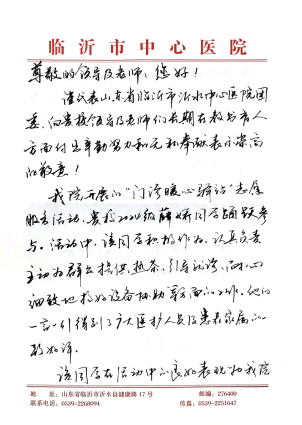 临沂市中心医院
尊敬的领导及老师：您好！
谨代表山东省临沂市沂水中心医院团
委，向贵校领导及老师们长期在教书育人
方面付出辛勤努力和无私奉献表示崇高
的敬意！
我院开展的“门诊暖心驿站”志愿
服务活动，贵校2021级薛 同学踊跃参
与。活动中，该同学积极作为、认真负责
主动为群众提供热茶、引导就诊、耐心
细致地 设备协助 的工作。他的
一言一行得到了广大医护人员及患者家属的一
致好评。
该同学在活动中良好表现和我院
地 址：山东省临沂市沂水县健康路17号
邮编：276400
联系电话：0539-2268094
传真：0539-2251647